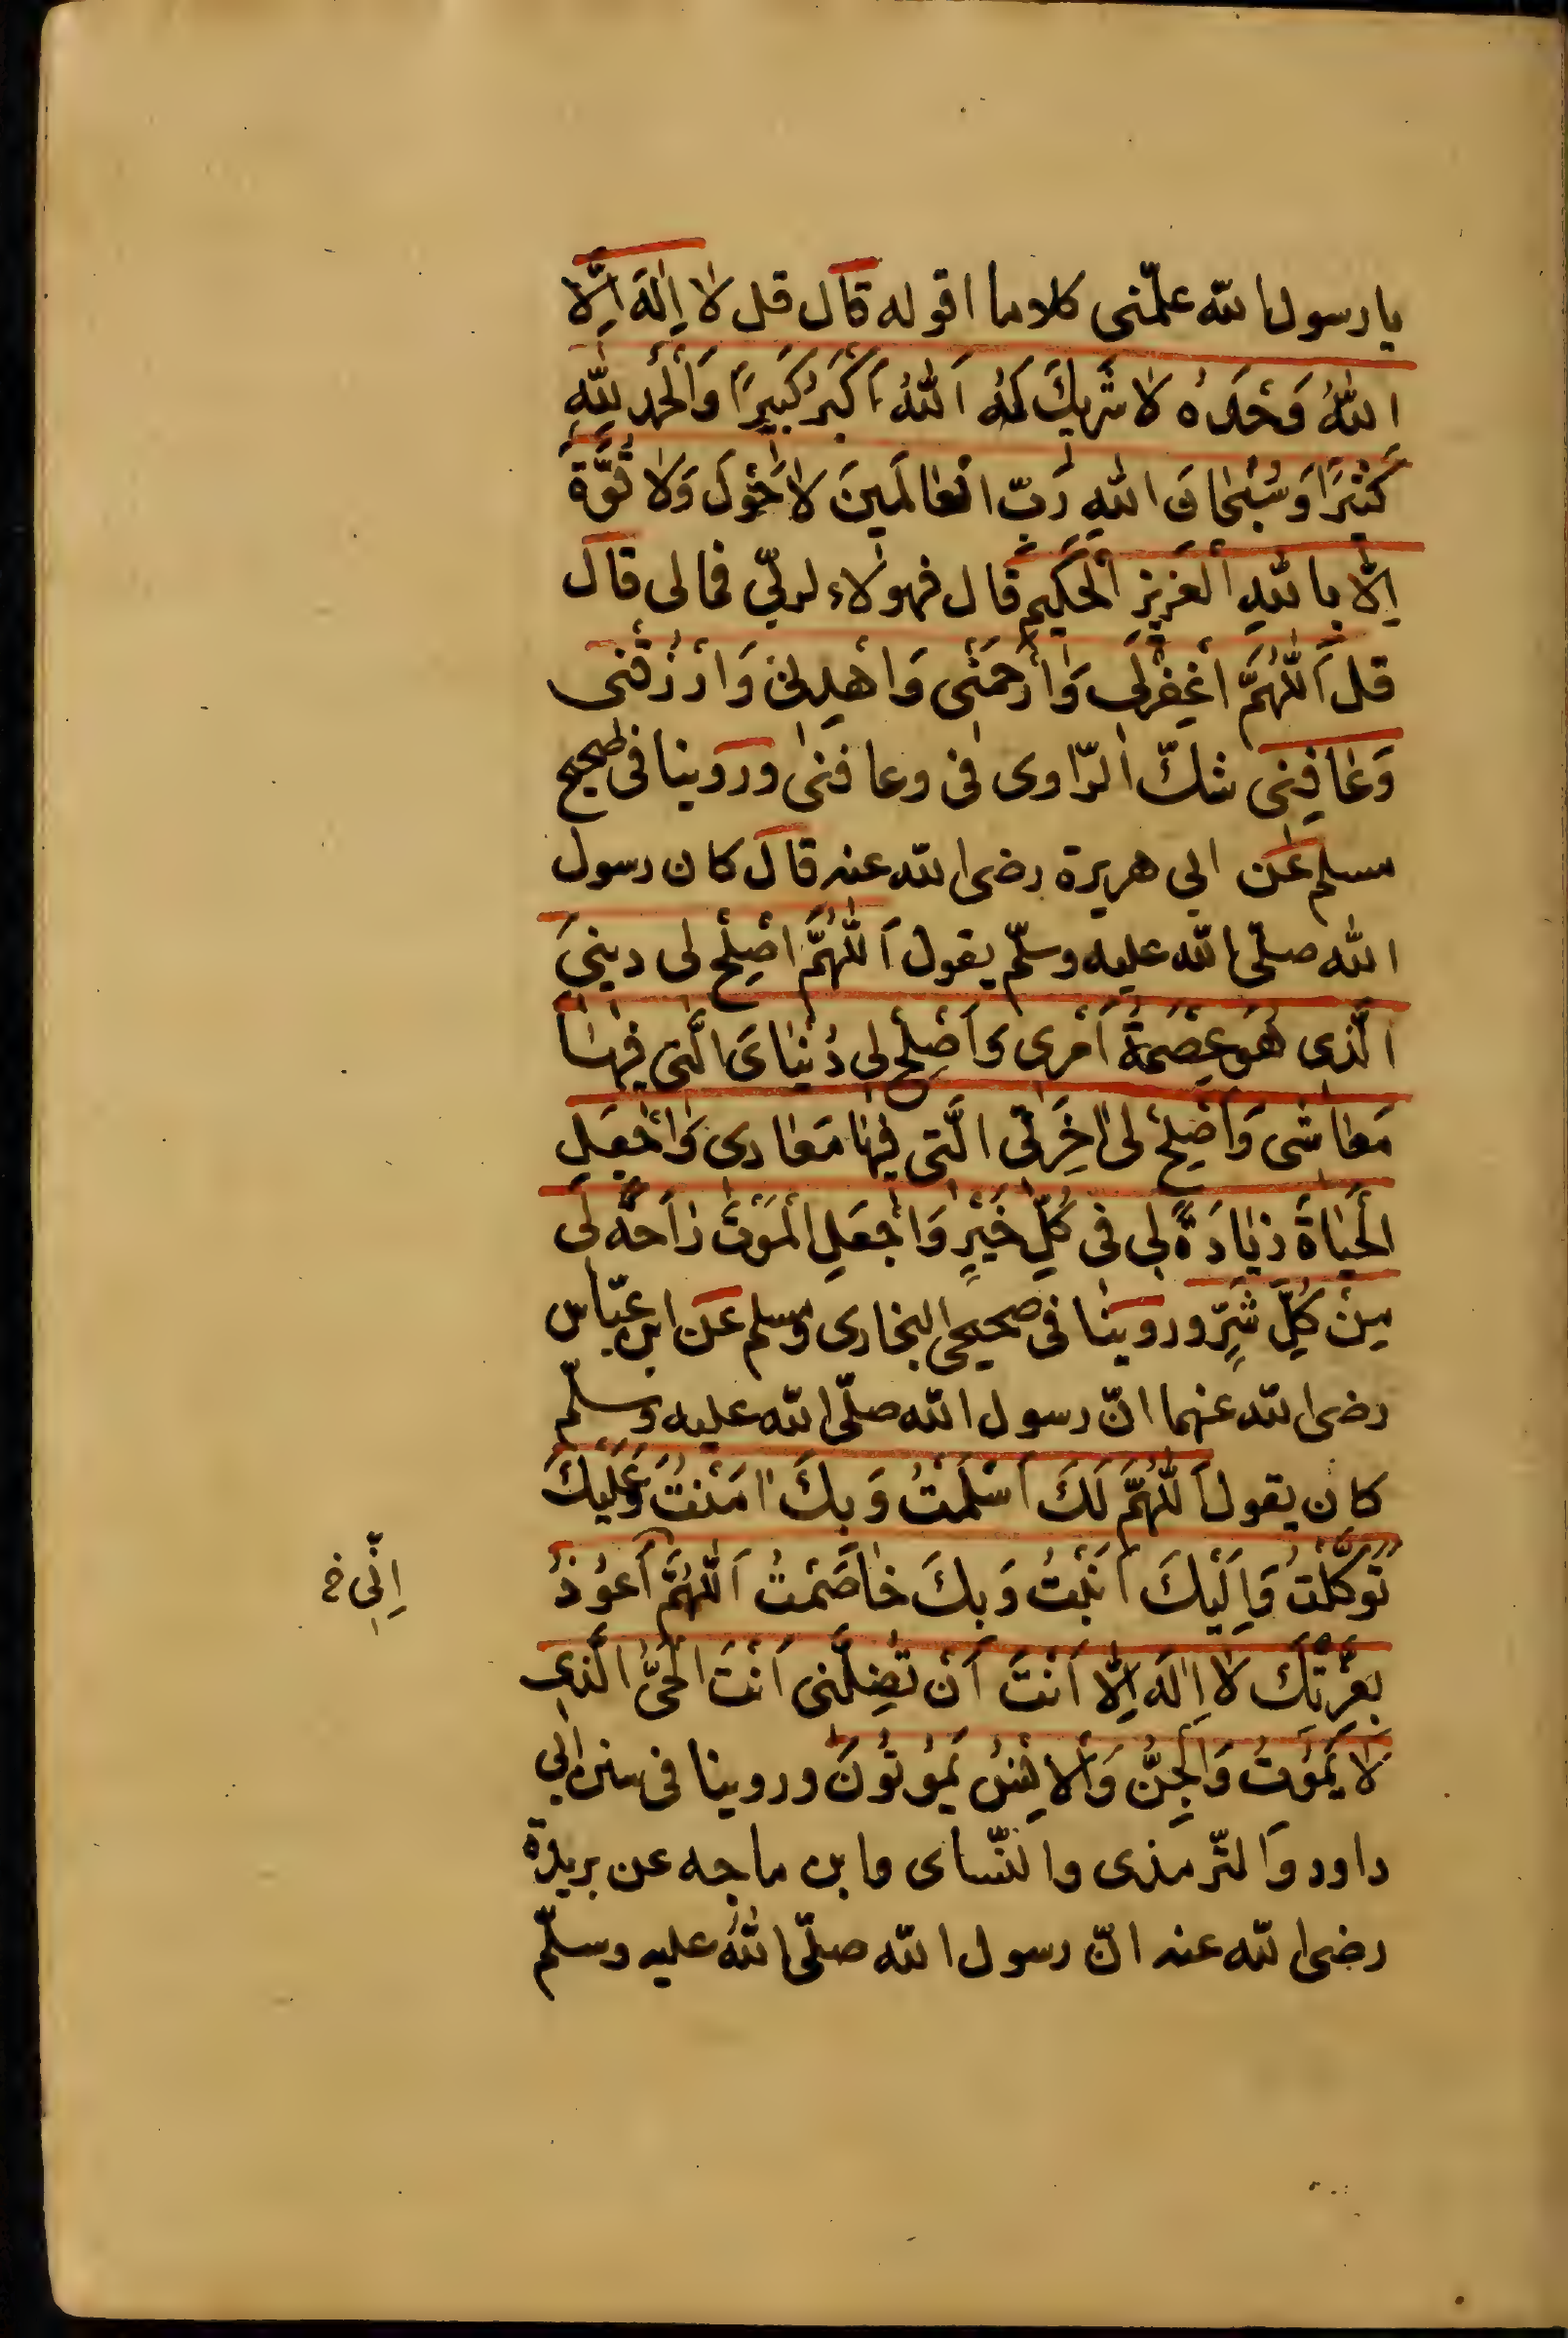 يا رسول الله علّمنى كلاما اقوله قال قل لا اِلٰهَ اِلَّا
اللّٰهُ وَحْدَهُ لَا شَرِيكَ لَهُ اَللّٰهُ اَكْبَرُ كَبِيرًا وَالْحَمْدُ لِلّٰهِ
كَثِيرًا وَسُبْحَانَ اللّٰهِ رَبِّ الْعَالَمِينَ لَا حَوْلَ وَلَا قُوَّةَ
اِلَّا بِاللّٰهِ الْعَزِيزِ الْحَكِيمِ قال فهولاء لربّي فمالى قال
قل اَللّٰهُمَّ اغْفِرْلِي وَارْحَمْنِى وَاهْدِنِي وَارْزُقْنِى
وَعَافِنِى شكّ الرّاوى فى وعافنى وروينا فى صحيح
مسلم عَن ابي هريرة رضى الله عنه قال كان رسول
الله صلّى الله عليه وسلّم يقول اَللّٰهُمَّ اَصْلِحْ لى دينِيَ
الَّذِى هُوَ عِصْمَةُ اَمْرِى وَاَصْلِحْ لِى دُنْيَاىَ الَّتِى فِيهَا
مَعَاشى وَاَصْلِحْ لى اٰخِرَتِى الَّتِى فِيهَا مَعَادى وَاجْعَلِ
الْحَيَاةَ زِيَادَةً لِى فى كُلِّ خَيْرٍ وَاجْعَلِ الْمَوْتَ رَاحَةً لِى
مِنْ كُلِّ شَرٍّ وروينا فى صحيحى البخارى ومسلم عَن ابن عبّاس
رضى الله عنهما انّ رسول الله صلّى الله عليه وسلّم
كان يقول اَللّٰهُمَّ لَكَ اَسْلَمْتُ وَبِكَ اٰمَنْتُ وَعَلَيْكَ
تَوَكَّلْتُ وَاِلَيْكَ اَنَبْتُ وَبِكَ خَاصَمْتُ اَللّٰهُمَّ اَعُوذُ
اِنّى خ
بِعِزَّتِكَ لَا اِلٰهَ اِلَّا اَنْتَ اَنْ تُضِلَّنى اَنْتَ الْحَىُّ الَّذِى
لَا يَمُوتُ وَالْجِنُّ وَالْاِنْسُ يَمُوتُونَ وروينا فى سنن ابي
داود وَالتّرمذى والنّساى وابن ماجه عن بريدة
رضى الله عنه انّ رسول الله صلّى اللّٰهُ عليه وسلّم